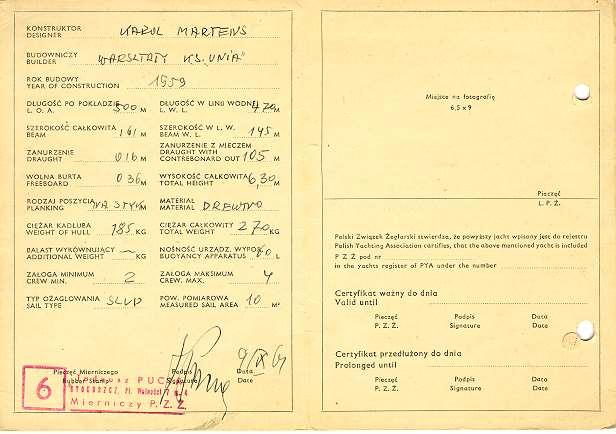 KONSTRUKTOR
DESIGNER KAROL MARTENS
BUDOWNICZY
BUILDER WARSZTATY KS. „UNIA"
ROK BUDOWY
YEAR OF CONSTRUCTION 1959
DŁUGOŚĆ PO POKŁADZIE
L. O. A. 500 M
DŁUGOŚĆ W LINII WODNEJ
L. W. L. 470 M
SZEROKOŚĆ CAŁKOWITA
BEAM 161 M
SZEROKOŚĆ W L. W.
BEAM W. L. 145 M
ZANURZENIE
DRAUGHT 016 M
ZANURZENIE Z MIECZEM
DRAUGHT WITH
CONTREBONARD OUT 105 M
WOLNA BURTA
FREEBOARD 036 M
WYSOKOŚĆ CAŁKOWITA
TOTAL HEIGHT 6,30 M
RODZAJ POSZYCIA
PLANKING NA STYK
MATERIAŁ
MATERIAL DREWNO
CIĘŻAR KADŁUBA
WEIGHT OF HULL 185 KG
CIĘŻAR CAŁKOWITY
TOTAL WEIGHT 270 KG
BALAST WYRÓWNUJĄCY
ADDITIONAL WEIGHT — KG
NOŚNOŚĆ URZĄDZ. WYPOR.
BUOYANCY APPARATUS L
ZAŁOGA MINIMUM
CREW MIN. 2
ZAŁOGA MAKSIMUM
CREW. MAX. 4
TYP OŻAGLOWANIA
SAIL TYPE SLUP
POW. POMIAROWA
MEASURED SAIL AREA 10 M²
9/IX 61
Pieczęć Mierniczego
Rubber Stamp
Podpis
Signature
Data
Date
6
Tadeusz
BYDGOSZCZ, Pl. Wolności
Mierniczy P. Z. Ż.
Miejsce na fotografię
6,5 x 9
Pieczęć
L. P. Ż.
Polski Związek Żeglarski stwierdza, że powyższy jacht wpisany jest do rejestru
Polish Yachting Association certifies, that the above mentioned yacht is included
P Z Ż pod nr
in the yachts register of PYA under the number
Certyfikat ważny do dnia
Valid until
Pieczęć Podpis Data
P. Z. Ż. Signature Date
Certyfikat przedłużony do dnia
Prolonged until
Pieczęć Podpis Data
P. Z. Ż. Signature Date